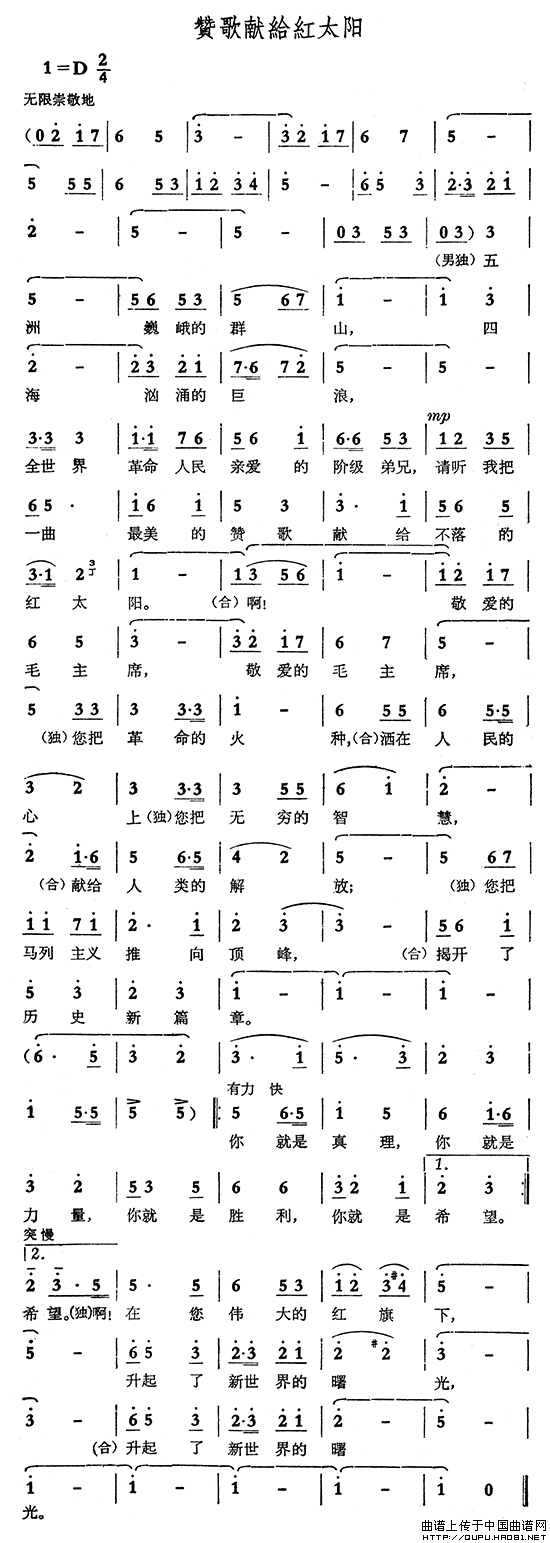 赞歌献給紅太阳
1=D 2/4
无限崇敬地
(0 2 1 7 | 6 5 | 3 - | 3 2 1 7 | 6 7 | 5 -
5 5 5 | 6 5 3 | 1 2 3 4 | 5 - | 6 5 3 | 2·3 2 1
2 - | 5 - | 5 - | 0 3 5 3 | 0 3) 3
(男独)五
5 - | 5 6 5 3 | 5 6 7 | 1 - | 1 3
洲 巍峨的 群 山, 四
2 - | 2 3 2 1 | 7·6 7 2 | 5 - | 5 -
海 汹涌的 巨 浪,
mp
3·3 3 | 1·1 7 6 | 5 6 1 | 6·6 5 3 | 1 2 3 5
全世界 革命人民 亲爱的 阶级弟兄, 请听我把
6 5 · | 1 6 1 | 5 3 | 3 · 1 | 5 6 5
一曲 最美的 赞歌 献给 不落的
3·1 2 3 | 1 - | 1 3 5 6 | 1 - | 1 2 1 7
红太 阳。 (合)啊! 敬爱的
6 5 | 3 - | 3 2 1 7 | 6 7 | 5 -
毛主席, 敬爱的毛主席,
5 3 3 | 3 3·3 | 1 - | 6 5 5 | 6 5·5
(独)您把 革命的火 种,(合)洒在 人民的
3 2 | 3 3·3 | 3 5 5 | 6 1 | 2 -
心 上(独)您把 无穷的 智 慧,
2 1·6 | 5 6·5 | 4 2 | 5 - | 5 6 7
(合)献给 人类的 解 放; (独)您把
1 1 7 1 | 2 · 1 | 2 3 | 3 - | 5 6 1
马列主义 推向 顶峰, (合)揭开了
5 3 | 2 3 | 1 - | 1 - | 1 -
历史 新篇 章。
(6 · 5 | 3 2 | 3 · 1 | 5 · 3 | 2 3
有力 快
1 5·5 | 5 5) ‖: 5 6·5 | 1 5 | 6 1·6
你 就是 真理, 你 就是
1.
3 2 | 5 3 5 | 6 6 | 3 2 1 | 2 3 :‖
力量, 你就是 胜利, 你就是 希望。
突慢
2.
2 3 · 5 | 5 · 5 | 6 5 3 | 1 2 3 #4 | 5 -
希望。(独)啊! 在您 伟大的 红旗 下,
5 - | 6 5 3 | 2·3 2 1 | 2 #2 | 3 -
升起了 新世界的 曙 光,
3 - | 6 5 3 | 2·3 2 1 | 2 - | 5 -
(合)升起了 新世界的 曙
1 - | 1 - | 1 - | 1 - | 1 0 ‖
光。
曲谱上传于中国曲谱网
HTTP://QUPU.HAO81.NET